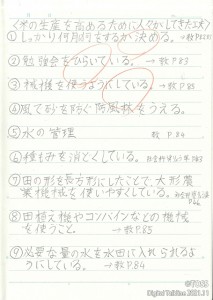 〈米の生産を高めるために人々がしてきた工夫〉
①しっかり何月何をするか決める。→教P82
②勉強会をひらいている。→教P83
③機械を使うようにしている。→教P85
④風で砂を防ぐ防風林をうえる。
⑤水の管理　教P84
⑥種もみを消どくしている。
⑦田の形を長方形にしたことで、大形農
業機械を使いやすくしている。
⑧田植え機やコンバインなどの機械
を使うこと。→教P.85
⑨必要な量の水を水田に入れられるよ
うにしている。→教P.84